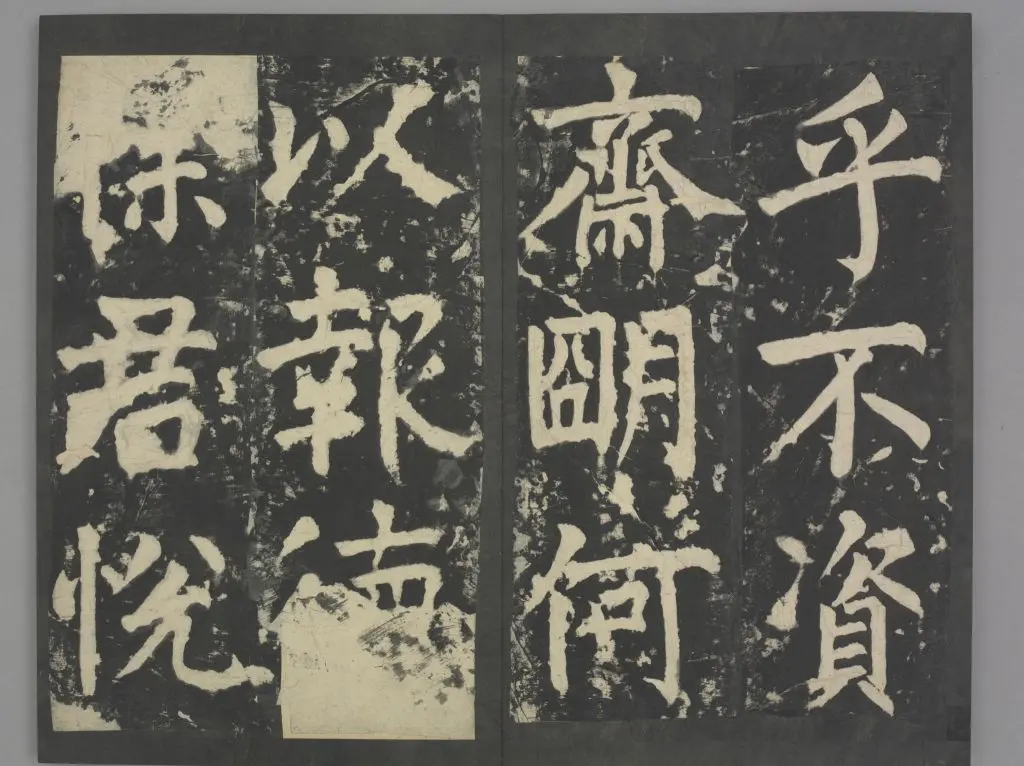 乎不資
齋朙何
以報德
徐君悅